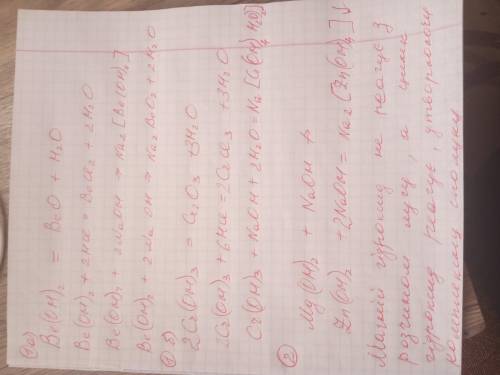 ① а)
Be(OH)₂ = BeO + H₂O
Be(OH)₂ + 2HCl = BeCl₂ + 2H₂O
Be(OH)₂ + 2NaOH = Na₂[Be(OH)₄]
Be(OH)₂ + 2NaOH = Na₂BeO₂ + 2H₂O
① б)
2Cr(OH)₃ = Cr₂O₃ + 3H₂O
2Cr(OH)₃ + 6HCl = 2CrCl₃ + 3H₂O
Cr(OH)₃ + NaOH + 2H₂O = Na[Cr(OH)₄(H₂O)₂]
②
Mg(OH)₂ + NaOH ≠
Zn(OH)₂ + 2NaOH = Na₂[Zn(OH)₄]↓
Магній гідроксид не реагує з
розчином лугу, а цинк
гідроксид реагує, утворюючи
комплексну сполуку